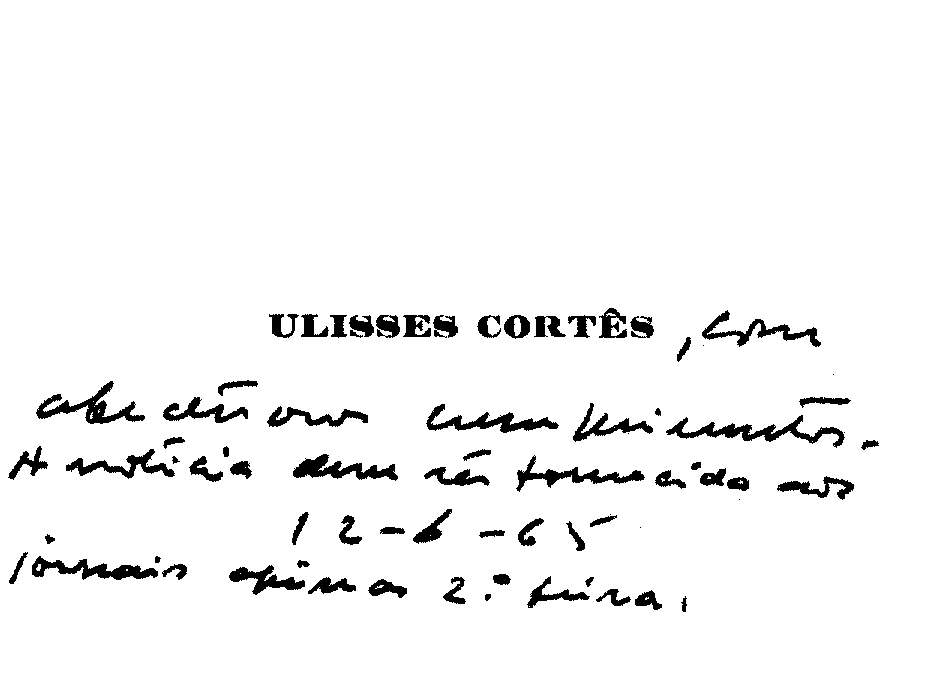 ULISSES CORTÊS, com
afectuosos cumprimentos.
A notícia deve ser fornecida aos
12-6-65
jornais apenas 2.ª feira.